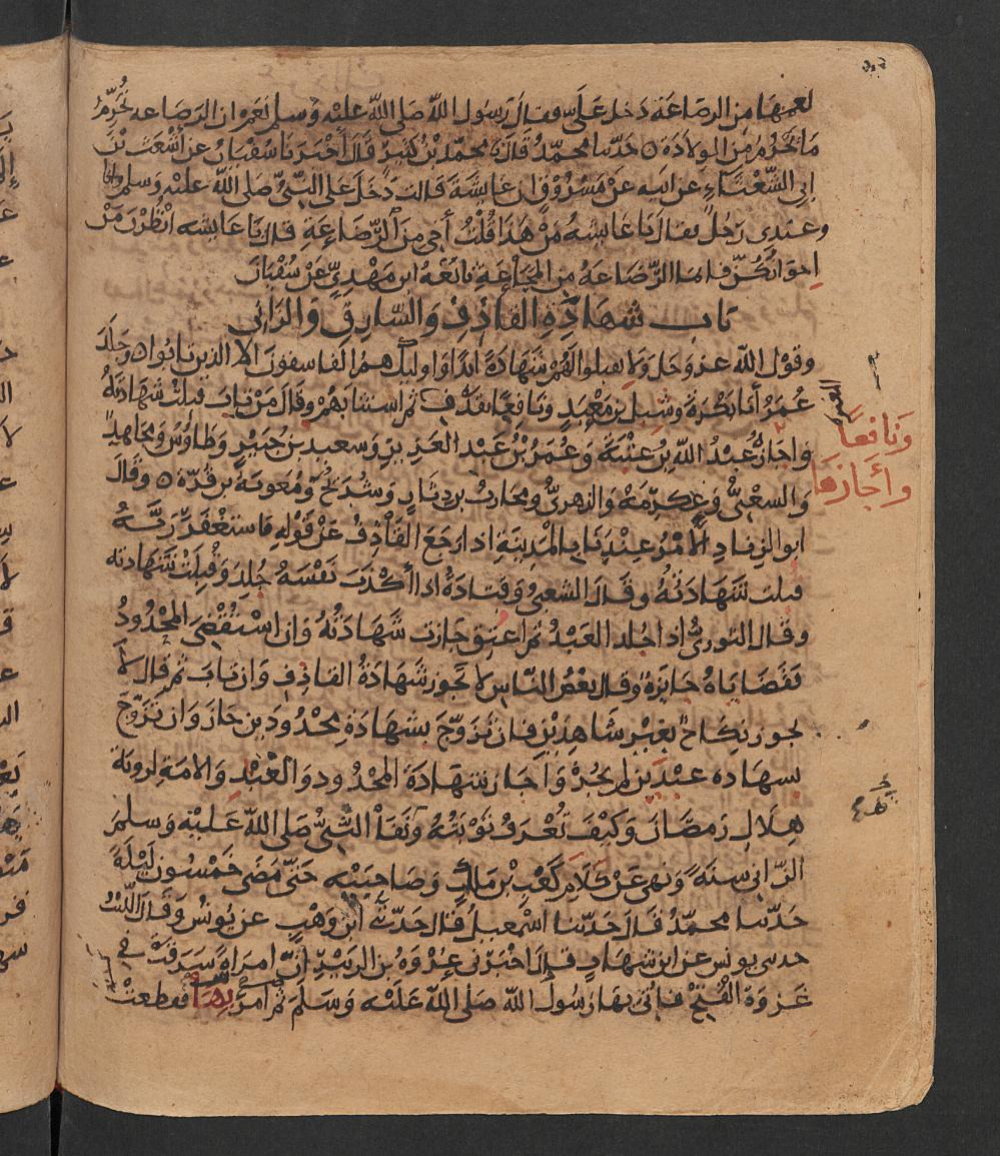 لعمها من الرضاعة دخل علي فقال رسول الله صلى الله عليه وسلم نعم وان الرضاعه تحرم
ما يحرم من الولادة ٥ حدثنا محمد قال نا محمد بن كثير قال اخبرنا سفيان عن أشعث بن
ابي الشعثاء عن ابيه عن مسروق ان عايشة قالت دخل على النبي صلى الله عليه وسلم
وعندى رجل فقال يا عايشة من هذا قلت أخي من الرضاعة قال يا عايشه انظرن من
اخوانكن فانما الرضاعة من المجاعة تابعه ابن مهدي عن سفيان
باب شهادة القاذف والسارق والزاني
وقول الله عز وجل ولا تقبلوا لهم شهادة ابدا واوليك هم الفاسقون الا الذين تابوا ٥ وجلد
عمر أبا بكرة وشبل بن معبد ونافعا بقذف ثم استتابهم وقال من تاب قبلت شهادته
واجازه عبد الله بن عتبة وعمر بن عبد العزيز وسعيد بن جبير وطاوس ومجاهد
والشعبي وعكرمة والزهري ومحارب بن دثار وشريح ومعوية بن قرة ٥ وقال
ابو الزناد الامر عندنا بالمدينة اذا رجع القاذف عن قوله فاستغفر ربه
قبلت شهادته وقال الشعبي وقتادة اذا أكذب نفسه جلد وقبلت شهادته
وقال الثوري اذا جلد العبد ثم اعتق جازت شهادته وان استقضي المحدود
فقضاياه جايزة وقال بعض الناس لا تجوز شهادة القاذف وان تاب ثم قال لا
يجوز نكاح بغير شاهدين فان تزوج بشهادة محدودين جاز وان تزوج
بشهاده عبدين لم يجز وأجاز شهادة المحدود والعبد والامة لروية
هلال رمضان وكيف تعرف توبته ونفا النبي صلى الله عليه وسلم
الزاني سنة ونهى عن كلام كعب بن مالك وصاحبيه حتى مضى خمسون ليلة
حدثنا محمد قال حدثنا اسمعيل قال حدثني ابن وهب عن يونس وقال الليث
حدثني يونس عن ابن شهاب قال اخبرني عروة بن الزبير أن امراة سرقت في
غزوة الفتح فاتي بها رسول الله صلى الله عليه وسلم ثم امر بها فقطعت
ونافعا
وأجازها